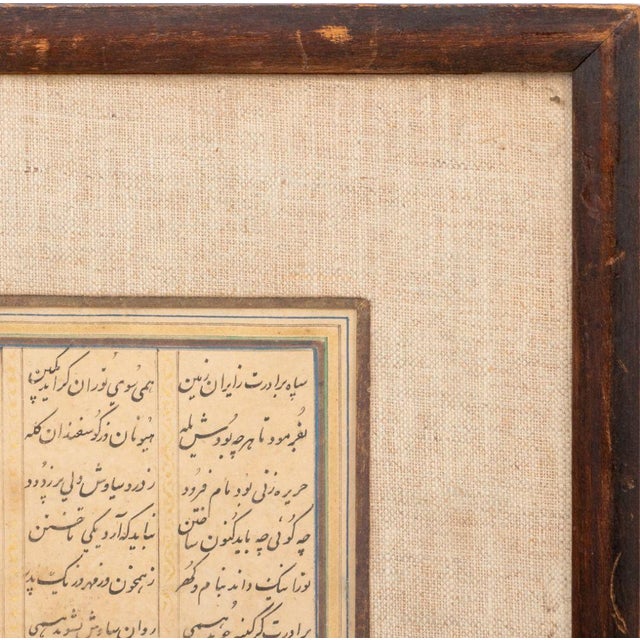 سپاه برادرت ز ایران زمین همی سوی توران گراید بکین
بفرمود تا هر چه بودش یله هیونان وز گوسفندان گله
جریره زنی بود مام فرود ز درد سیاوش دلی پر ز دود
چه گوئی چه باید کنون ساختن نباید که آرد یکی تاختن
تو را نیک داند بنام و گهر ز همخون وز مهر وز یک پدر
برادرت گر کینه جوید همی روان سیاوش بشوید همی